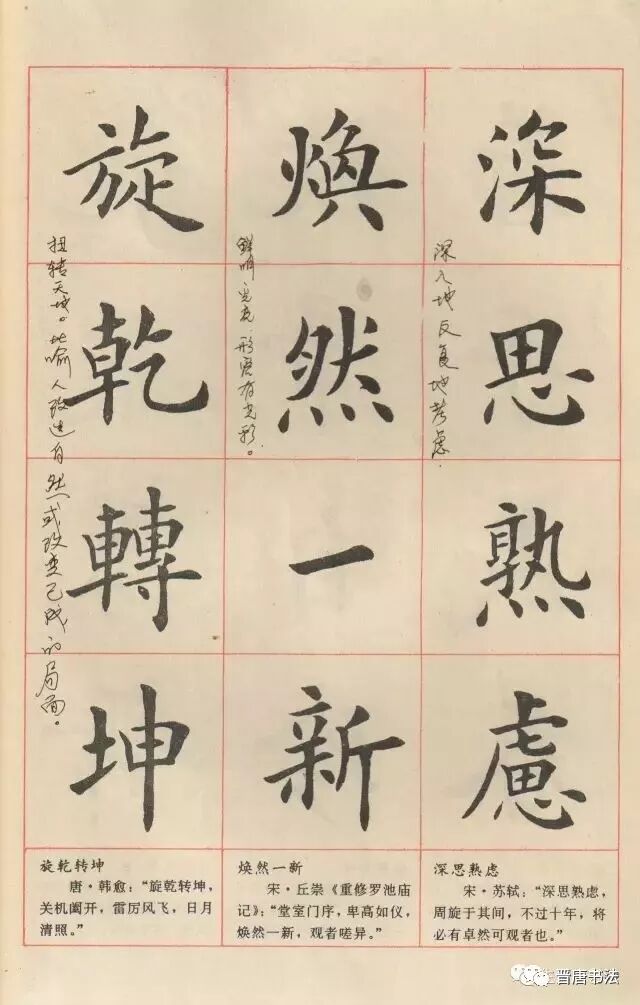 深思熟慮
深入地反复地考虑.
煥然一新
鲜明光亮.形容有光彩。
旋乾轉坤
扭转天地。比喻人改造自然或改变已成的局面。
旋乾转坤
唐·韩愈：“旋乾转坤，
关机阖开，雷厉风飞，日月
清照。”
焕然一新
宋·丘崇《重修罗池庙
记》：“堂室门序，卑高如仪，
焕然一新，观者嗟异。”
深思熟虑
宋·苏轼：“深思熟虑，
周旋于其间，不过十年，将
必有卓然可观者也。”
晋唐书法